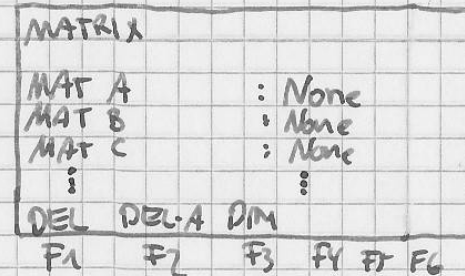 MATRIX
MAT A : None
MAT B : None
MAT C : None
⋮ ⋮
DEL DEL·A DIM
F1 F2 F3 F4 F5 F6